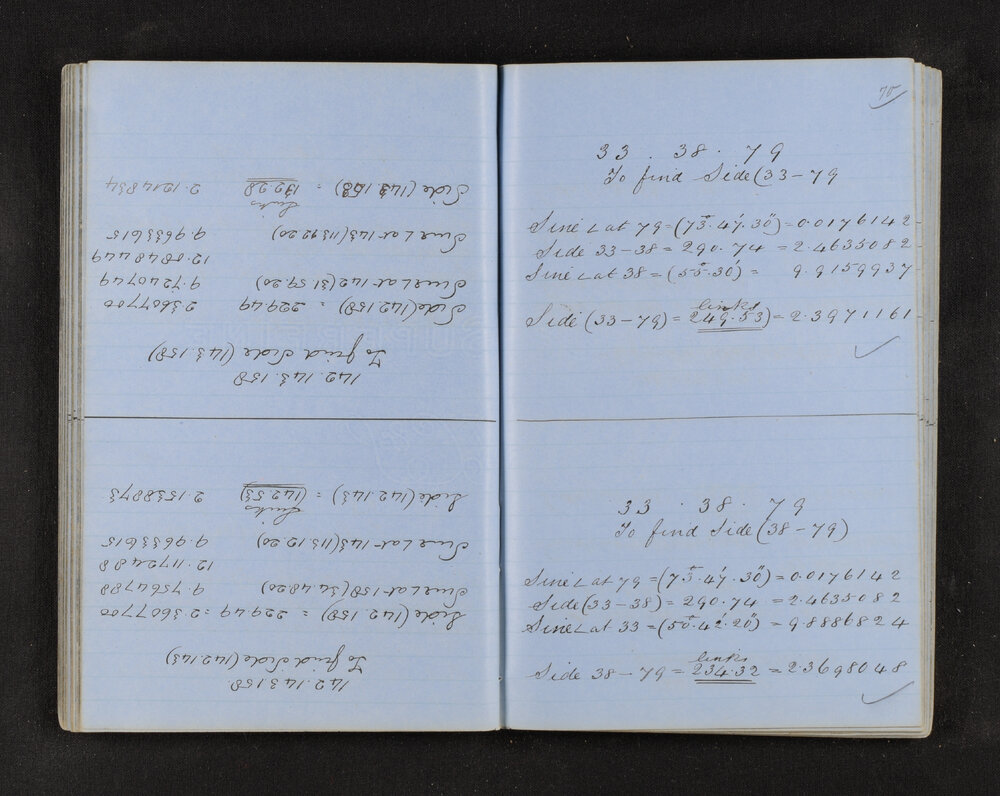 142.143.158
To find Side (142.143)
Side (142.158) = 229.49 = 2.3607700
Sine ∠ at 158 (34.48.20) 9.7564788
12.1172488
Sine ∠ at 143 (113.12.20) 9.9633615
Links
Side (142.143) = (142.53) 2.1538873
142.143.158
To find Side (143.158)
Side (142.158) = 229.49 2.3607700
Sine ∠ at 142 (31.59.20) 9.7240749
12.0848449
Sine ∠ at 143 (113.12.20) 9.9633615
Links
Side (143.158) = 132.28 2.1214834
70
33 . 38 . 79
To find Side (33-79
Sine ∠ at 79 = (73°.47'.30") = 0.0176142
Side 33-38 = 290.74 = 2.4635082
Sine ∠ at 38 = (55°.30') = 9.9159937
links
Side (33-79) = 249.53) = 2.3971161
33 . 38 . 79
To find Side (38-79)
Sine ∠ at 79 = (73°.47'.30") = 0.0176142
Side (33-38) = 290.74 = 2.4635082
Sine ∠ at 33 = (50°.42'.20") = 9.8886824
links
Side 38-79 = 234.32 = 2.3698048